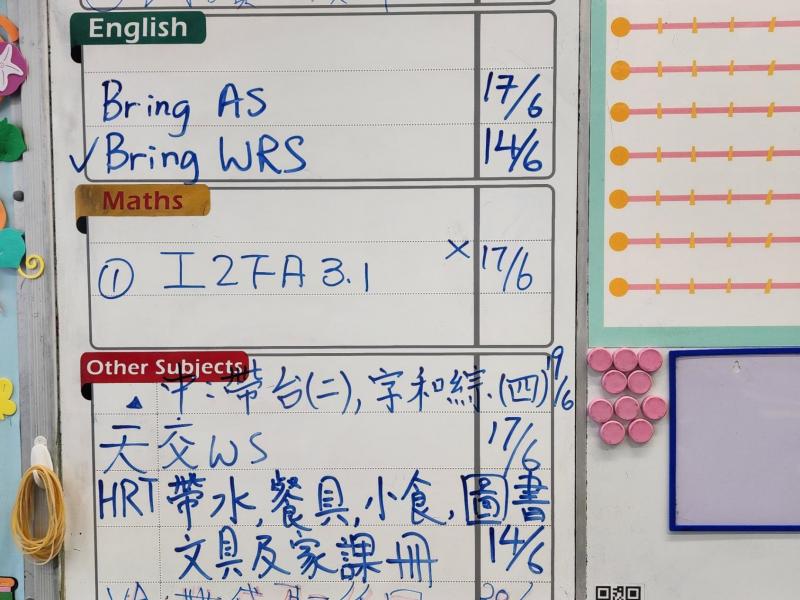 English
Bring AS 17/6
✓Bring WRS 14/6
Maths
① 工2下A 3.1 × 17/6
Other Subjects
▲ 中:帶台(二),字和綜.(四) 19/6
天 交WS 17/6
HRT 帶水,餐具,小食,圖書
文具及家課冊 14/6